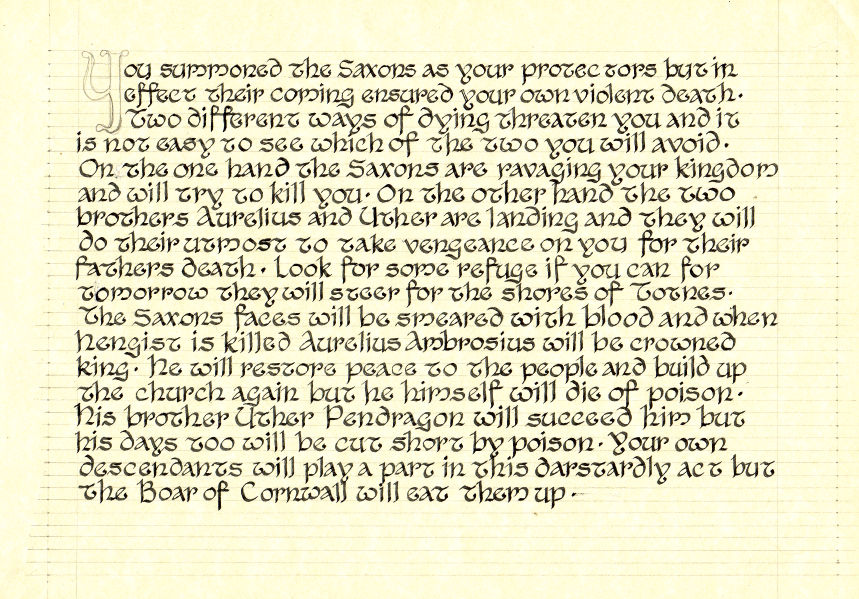 You summoned the Saxons as your protectors but in
effect their coming ensured your own violent death.
Two different ways of dying threaten you and it
is not easy to see which of the two you will avoid.
On the one hand the Saxons are ravaging your kingdom
and will try to kill you. On the other hand the two
brothers Aurelius and Uther are landing and they will
do their utmost to take vengeance on you for their
fathers death. Look for some refuge if you can for
tomorrow they will steer for the shores of Totnes.
The Saxons faces will be smeared with blood and when
Hengist is killed Aurelius Ambrosius will be crowned
king. He will restore peace to the people and build up
the church again but he himself will die of poison.
His brother Uther Pendragon will succeed him but
his days too will be cut short by poison. Your own
descendants will play a part in this darstardly act but
the Boar of Cornwall will eat them up.